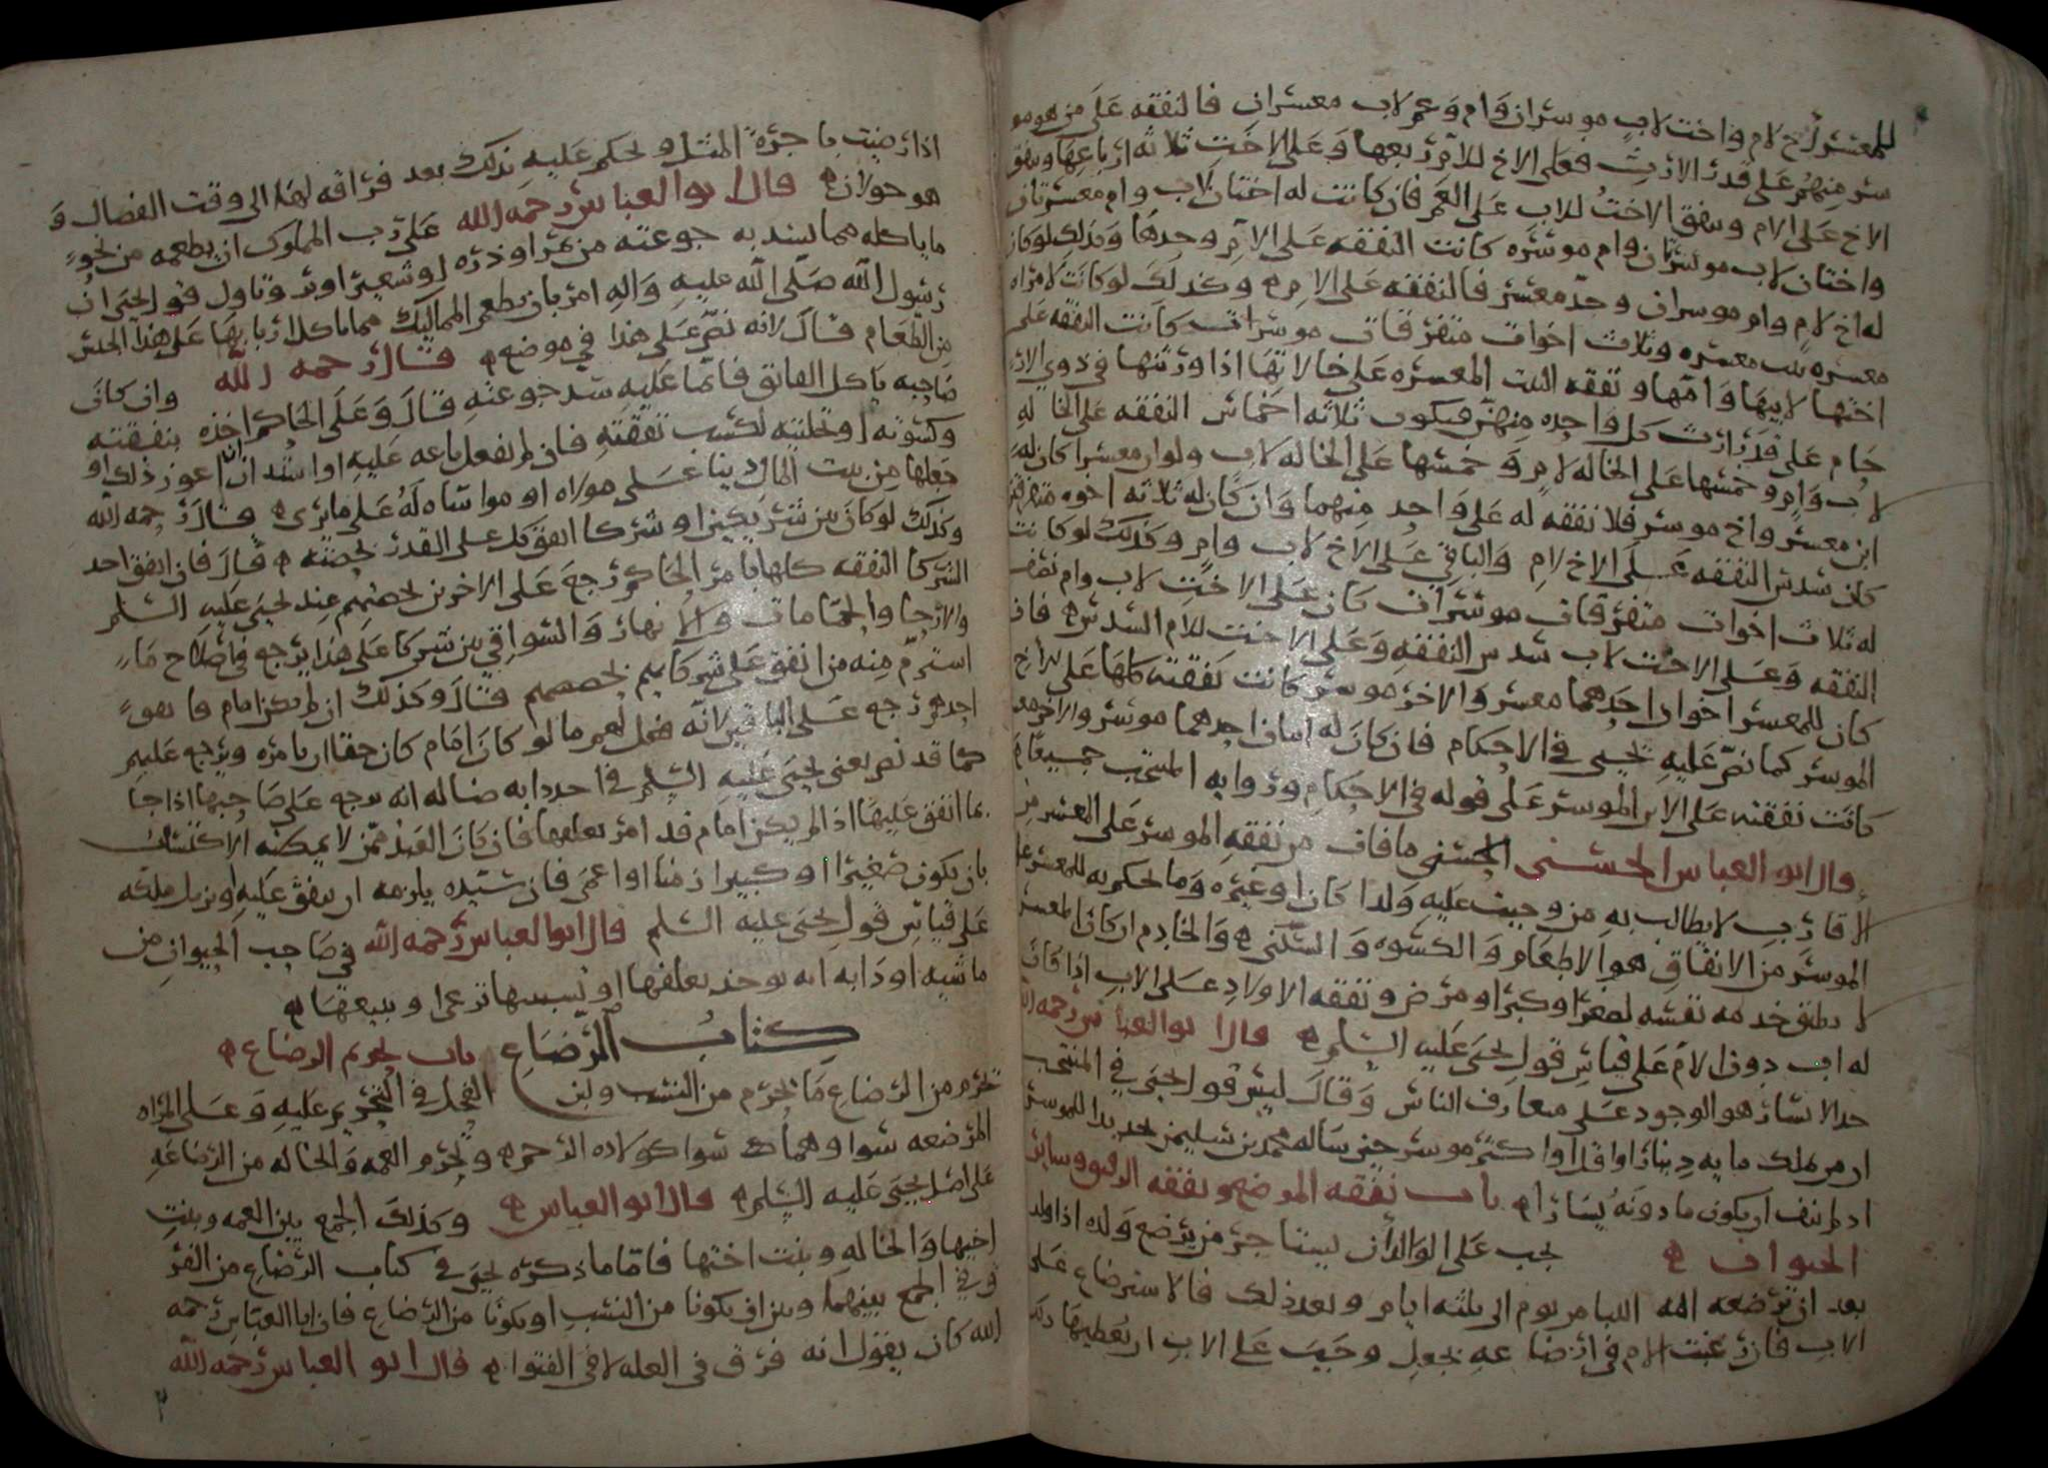 للمعسر أخ لام واخت لاب موسران وام وعم لاب معسران فالنفقه على من هو مو
سر منهم على قدر الارث فعلى الاخ للام ربعها وعلى الاخت ثلاثه ارباعها وينفق
الاخ على الام وينفق الاخت للاب على العم فان كانت له اختان لاب وام معسرتان
واختان لاب موسرتان وام موسره كانت النفقه على الام وحدها وكذلك لو كان
له اخ لام وام موسران وجد معسر فالنفقه على الام وكذلك لو كانت لامراه
معسره بنت معسره وثلاث اخوات متفرقات موسرات كانت النفقه على
اختها لابيها وامها ونفقه البنت المعسره على خالاتها اذا ورثتها في ذوي الار
حام على قدر ارث كل واحده منهن فيكون ثلاثه اخماس النفقه على الخاله
لاب وام وخمسها على الخاله لام وخمسها على الخاله لاب ولو ان معسرا كان له
ابن معسر واخ موسر فلا نفقه له على واحد منهما وان كان له ثلاثه اخوه متفرقين
كان سدس النفقه على الاخ لام والباقي على الاخ لاب وام وكذلك لو كانت
له ثلاث اخوات متفرقات موسرات كان على الاخت لاب وام نصف
النفقه وعلى الاخت لاب سدس النفقه وعلى الاخت للام السدس فان
كان للمعسر اخوان احدهما معسر والاخر موسر كانت نفقته كلها على الاخ
الموسر كما نص عليه يحيى في الاحكام فان كان له ابنان احدهما موسر والاخر معسر
كانت نفقته على الابن الموسر على قوله في الاحكام وروايه المنتخب جميعا
قال ابو العباس الحسني الحسني ما فات من نفقه الموسر على المعسر من
الاقارب لا يطالب به من وجبت عليه ولدا كان او غيره وما يحكم به للمعسر على
الموسر من الانفاق هو الاطعام والكسوه والسكنى والخادم ان كان المعسر
لا يطيق خدمه نفسه لصغر او كبر او مرض ونفقه الاولاد على الاب اذا كان
له اب دون الام على قياس قول يحيى عليه السلم قال ابو العباس رحمه الله
حد الايسار هو الوجود على متعارف الناس وقال ليس قول يحيى في المنتخب
ان من ملك مايه دينار او اقل او اكثر موسر حين ساله محمد بن سليمن تحديدا للموسر
اذ لم ينف ان يكون ما دونه يسارا باب نفقه المرضع ونفقه الرقيق وسائر
الحيوان يجب على الوالد ان يستاجر من يرضع ولده اذا ولد
بعد ان ترضعه امه اللبا من يوم الى ثلثه ايام وبعد ذلك فالاسترضاع على
الاب فان رغبت الام في ارضاعه بجعل وجب على الاب ان يعطيها ذلك
اذا رضيت باجره المثل ويحكم عليه بذلك بعد فراقه لها الى وقت الفصال و
هو حولان قال ابو العباس رحمه الله على رب المملوك ان يطعمه من نحو
ما ياكله مما يسد به جوعته من تمر او ذره او شعير او بر وتاول قول يحيى ان
رسول الله صلى الله عليه واله امر بان يطعم المماليك مما ياكل اربابها على هذا الجنس
من الطعام قال لانه نص على هذا في موضع قال رحمه الله وان كان
صاحبه ياكل الفايق فانما عليه سد جوعته قال وعلى الحاكم اخذه بنفقته
وكسوته او تخليته لكسب نفقته فان لم يفعل باعه عليه او استدان ان اعوز ذلك او
جعلها من بيت المال دينا على مولاه او مواساه له على ما يرى قال رحمه الله
وكذلك لو كان بين شريكين او شركا انفق كل على القدر بحصته قال فان انفق احد
الشركا النفقه كلها بامر الحاكم رجع على الاخرين بحصتهم عند يحيى عليه السلم
والارحا والحمامات والانهار والسواقي بين شركا على هذا يرجع في اصلاح ما
استرم منه من انفق على شركايهم بحصصهم قال وكذلك ان لم يكن امام فانفق
احدهم رجع على الباقين لانه فعل لهم ما لو كان امام كان حقا ان يامره ويرجع عليهم
كما قد نص يعني يحيى عليه السلم في احد دابه ضاله انه يرجع على صاحبها اذا جا
بما انفق عليها اذا لم يكن امام قد امر بعلفها فان كان العبد ممن لا يمكنه الاكتساب
بان يكون صغيرا او كبيرا زمنا او اعمى فان سيده يلزمه ان ينفق عليه او يزيل ملكه
على قياس قول يحيى عليه السلم قال ابو العباس رحمه الله في صاحب الحيوان من
ماشيه او دابه انه يوخذ بعلفها او تسييبها ترعى او بيعها
كتاب الرضاع باب تحريم الرضاع
تحرم من الرضاع ما يحرم من النسب ولبن الفحل في التحريم عليه وعلى المراه
المرضعه سوا وهما سوا كولاده الرحم وتحرم العمه والخاله من الرضاعه
على اصل يحيى عليه السلم قال ابو العباس وكذلك الجمع بين العمه وبنت
اخيها والخاله وبنت اختها فاما ما ذكره يحيى في كتاب الرضاع من الفر
ق في الجمع بينهما وبين ان يكونا من النسب او يكونا من الرضاع فان ابا العباس رحمه
الله كان يقول انه فرق في العله لا في الفتوا قال ابو العباس رحمه الله